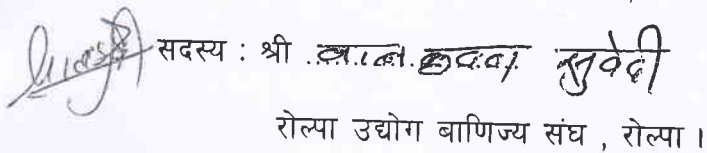 सदस्य : श्री सुवेदी
रोल्पा उद्योग बाणिज्य संघ , रोल्पा ।